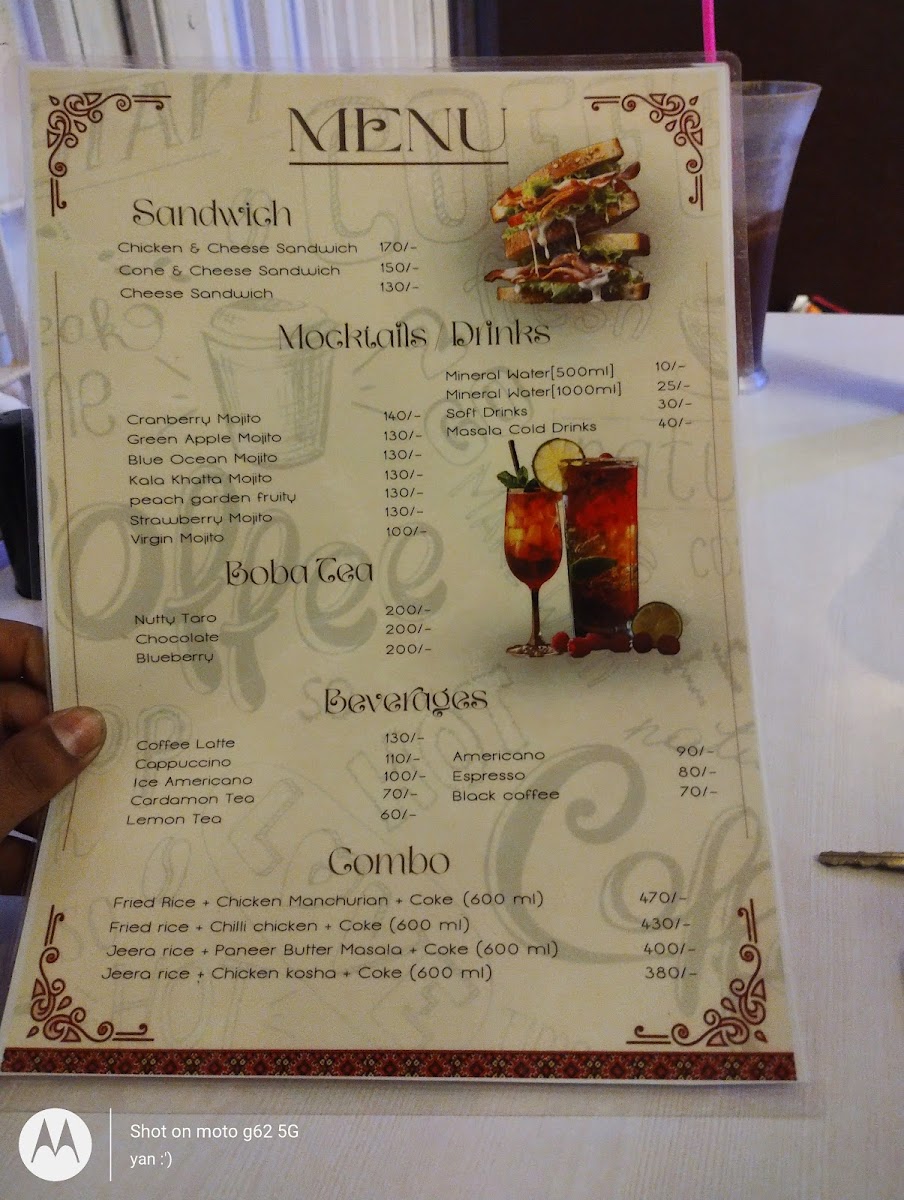 MENU
Sandwich
Chicken & Cheese Sandwich 170/-
Cone & Cheese Sandwich 150/-
Cheese Sandwich 130/-
Mocktails / Drinks
Mineral Water[500ml] 10/-
Mineral Water[1000ml] 25/-
Soft Drinks 30/-
Masala Cold Drinks 40/-
Cranberry Mojito 140/-
Green Apple Mojito 130/-
Blue Ocean Mojito 130/-
Kala Khatta Mojito 130/-
peach garden fruity 130/-
Strawberry Mojito 130/-
Virgin Mojito 100/-
Boba Tea
Nutty Taro 200/-
Chocolate 200/-
Blueberry 200/-
Beverages
Coffee Latte 130/-
Cappuccino 110/-
Ice Americano 100/-
Cardamon Tea 70/-
Lemon Tea 60/-
Americano 90/-
Espresso 80/-
Black coffee 70/-
Combo
Fried Rice + Chicken Manchurian + Coke (600 ml) 470/-
Fried rice + Chilli chicken + Coke (600 ml) 430/-
Jeera rice + Paneer Butter Masala + Coke (600 ml) 400/-
Jeera rice + Chicken kosha + Coke (600 ml) 380/-
Shot on moto g62 5G
yan :')